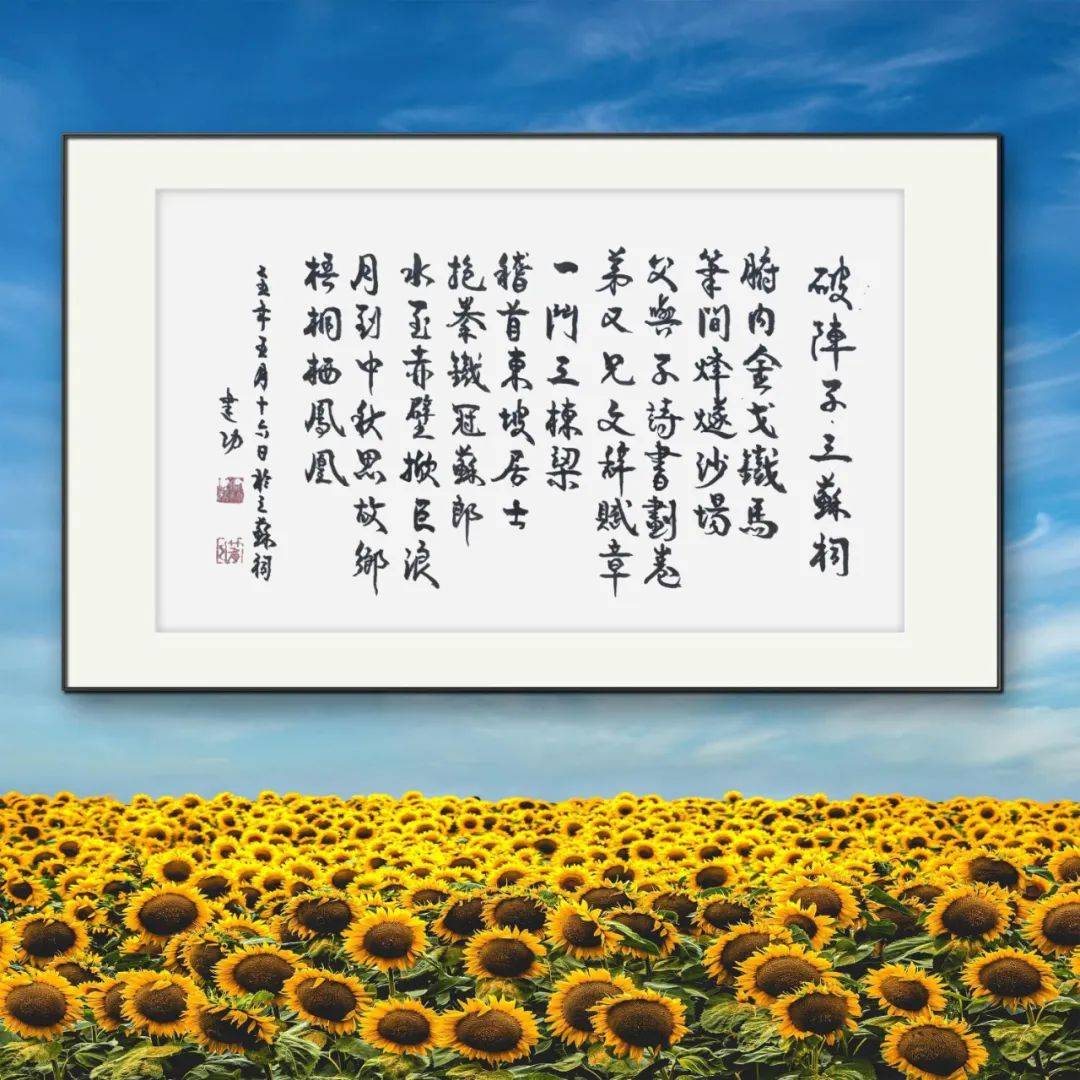 破陣子·三蘇祠
腑内金戈鐵馬
筆間烽燧沙場
父與子詩書劃卷
弟又兄文辞賦章
一門三棟梁
稽首東坡居士
鐵冠蘇郎
水至赤壁掀巨浪
月到中秋思故鄉
梧桐栖鳳凰
年五月十六日於三蘇祠
建功